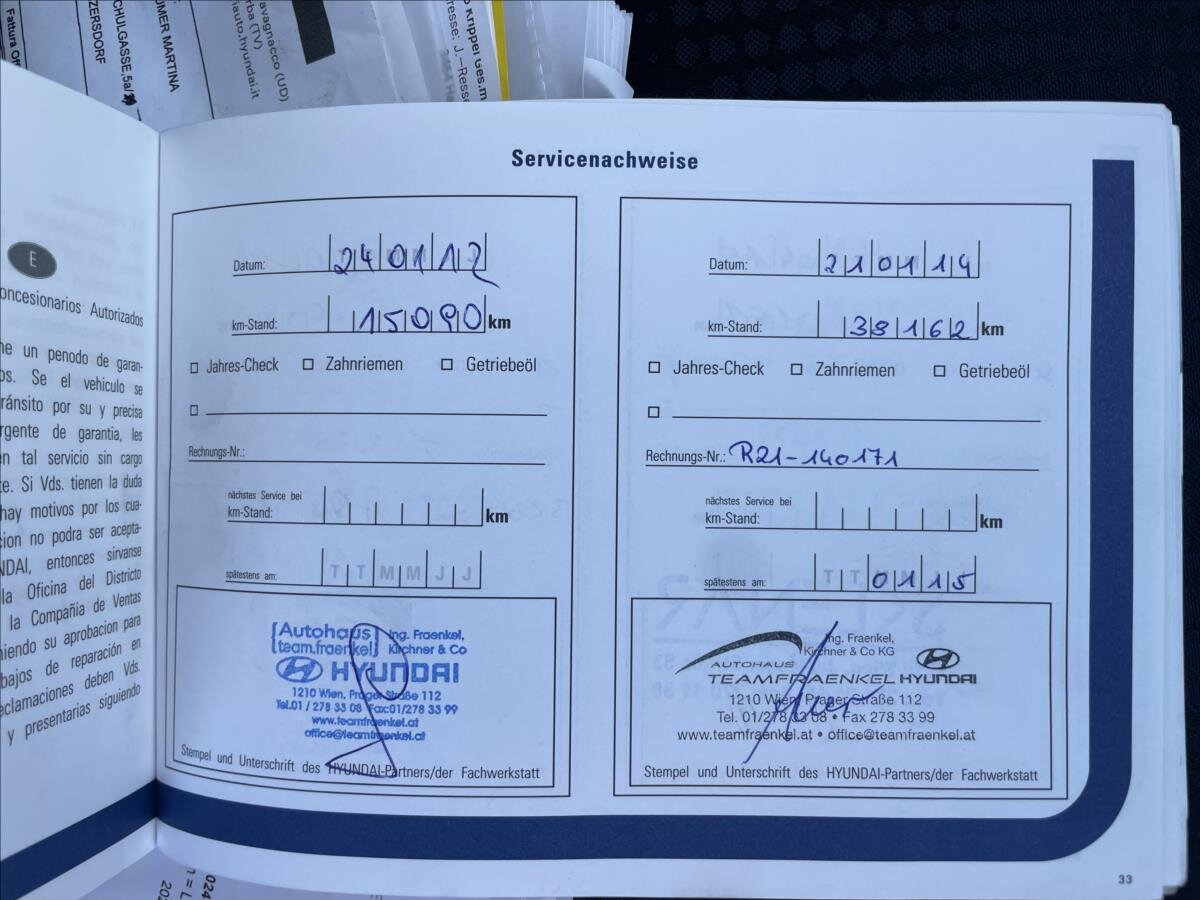 Fattura
ZERSDORF
CHULGASSE,5a/
UMER MARTINA
avagnacco (UD)
rba (TV)
iauto.hyundai.it
o Krippel Ges.m
resse: J.–Resse
E
oncesionarios Autorizados
ne un penodo de garan-
os. Se el vehiculo se
ránsito por su y precisa
rgente de garantia, les
en tal servicio sin cargo
te. Si Vds. tienen la duda
hay motivos por los cua-
cion no podra ser acepta-
NDAI, entonces sirvanse
la Oficina del Districto
la Compañia de Ventas
niendo su aprobacion para
bajos de reparación en
eclamaciones deben Vds.
y presentarias siguiendo
Servicenachweise
Datum: 240112
km-Stand: 15090 km
Jahres-Check Zahnriemen Getriebeöl
Rechnungs-Nr.:
nächstes Service bei
km-Stand: km
spätestens am: T T M M J J
[Autohaus] Ing. Fraenkel,
[team.fraenkel] Kirchner & Co
HYUNDAI
1210 Wien, Prager Straße 112
Tel.01 / 278 33 08 Fax:01/278 33 99
www.teamfraenkel.at
office@teamfraenkel.at
Stempel und Unterschrift des HYUNDAI-Partners/der Fachwerkstatt
Datum: 210114
km-Stand: 38162 km
Jahres-Check Zahnriemen Getriebeöl
Rechnungs-Nr.: R21-140171
nächstes Service bei
km-Stand: km
spätestens am: T T 0115
Ing. Fraenkel,
Kirchner & Co KG
AUTOHAUS
TEAMFRAENKEL HYUNDAI
1210 Wien, Prager Straße 112
Tel. 01/278 33 08 • Fax 278 33 99
www.teamfraenkel.at • office@teamfraenkel.at
Stempel und Unterschrift des HYUNDAI-Partners/der Fachwerkstatt
33
024